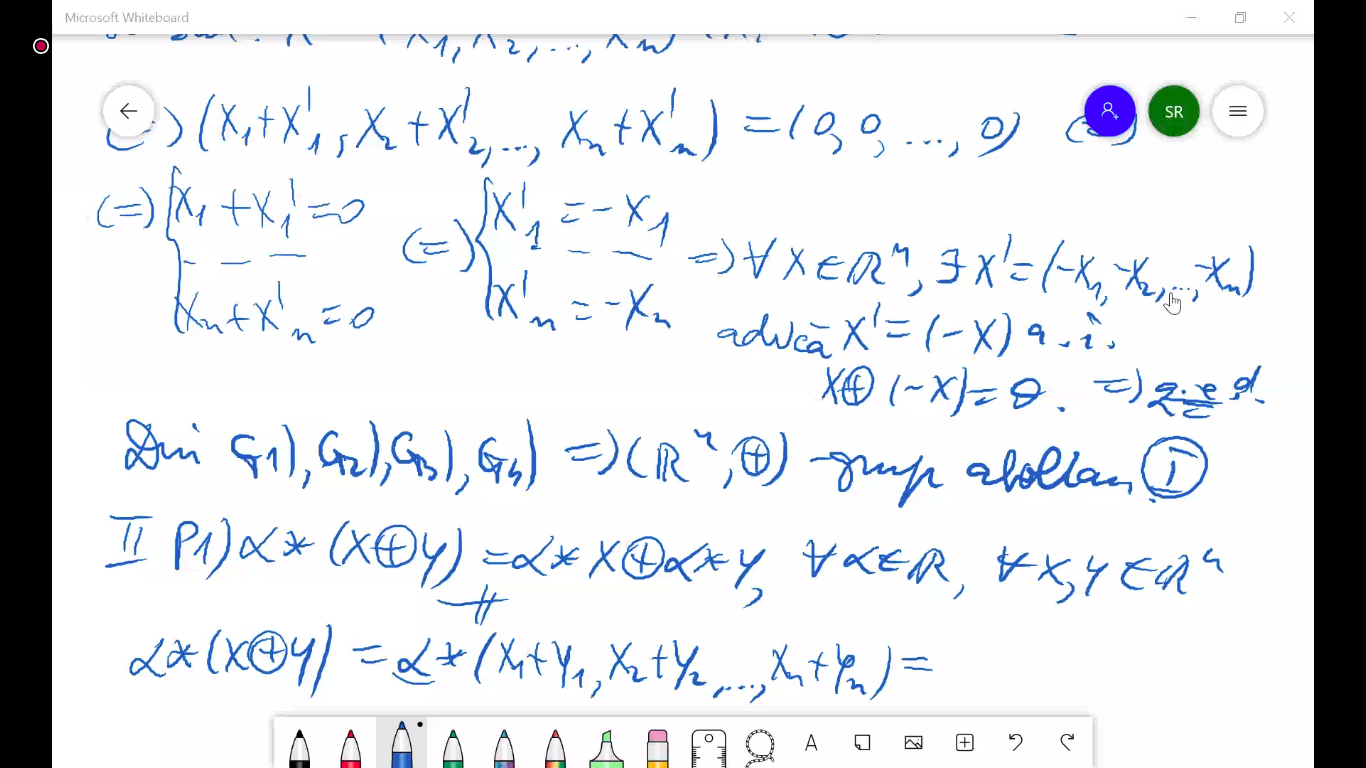 Microsoft Whiteboard
SR
(x₁+x'₁, x₂+x'₂, ..., xₙ+x'ₙ) = (0, 0, ..., 0) (=)
(=) { x₁ + x'₁ = 0
- - -
xₙ + x'ₙ = 0
(=) { x'₁ = -x₁
- - -
x'ₙ = -xₙ
=) ∀ x ∈ ℝⁿ, ∃ x' = (-x₁, -x₂, ..., -xₙ)
adică x' = (-x) a.î.
x ⊕ (-x) = θ. =) q.e.d.
Din G1), G2), G3), G4) =) (ℝⁿ, ⊕) - grup abelian. Ⓘ
II P1) α * (x ⊕ y) = α * x ⊕ α * y, ∀ α ∈ ℝ, ∀ x, y ∈ ℝⁿ
α * (x ⊕ y) = α * (x₁+y₁, x₂+y₂, ..., xₙ+yₙ) =
A